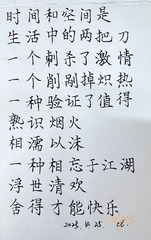 时间和空间是
生活中的两把刀
一个刺杀了激情
一个削剐掉炽热
一种验证了值得
熟识烟火
相濡以沫
一种相忘于江湖
浮世清欢
舍得才能快乐
2025.4.25.